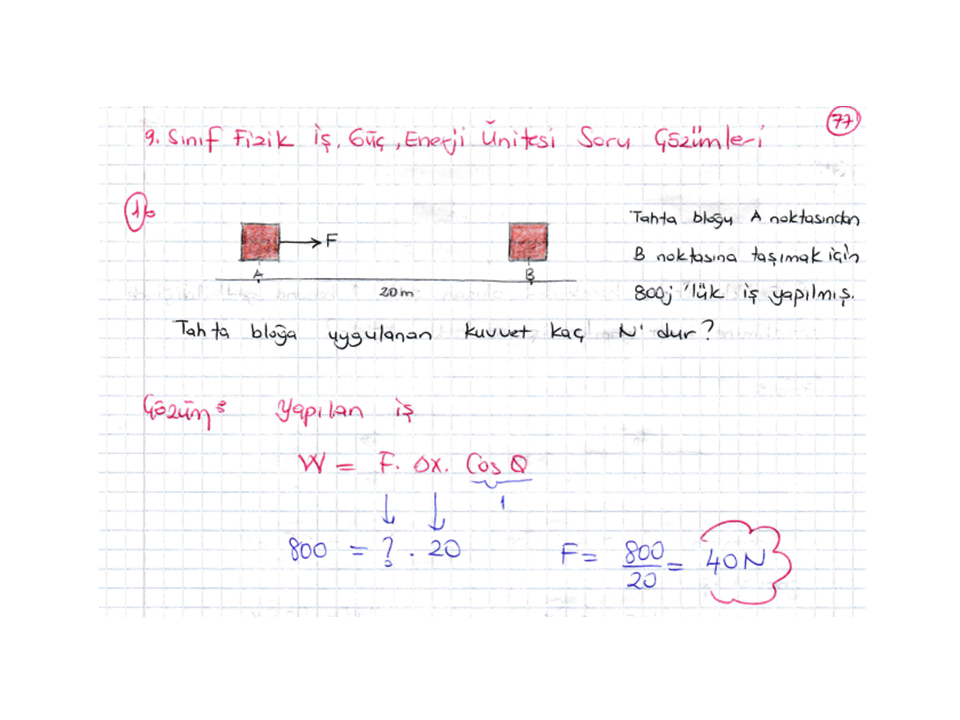 77
9. Sınıf Fizik İş, Güç, Enerji Ünitesi Soru Çözümleri
1.
F
A
B
20m
Tahta bloğu A noktasından
B noktasına taşımak için
800j 'lük iş yapılmış.
Tahta bloğa uygulanan kuvvet kaç N' dur?
Çözüm: Yapılan iş
W = F. Δx. Cos Q
1
800 = ? . 20
F = 800/20 = 40N